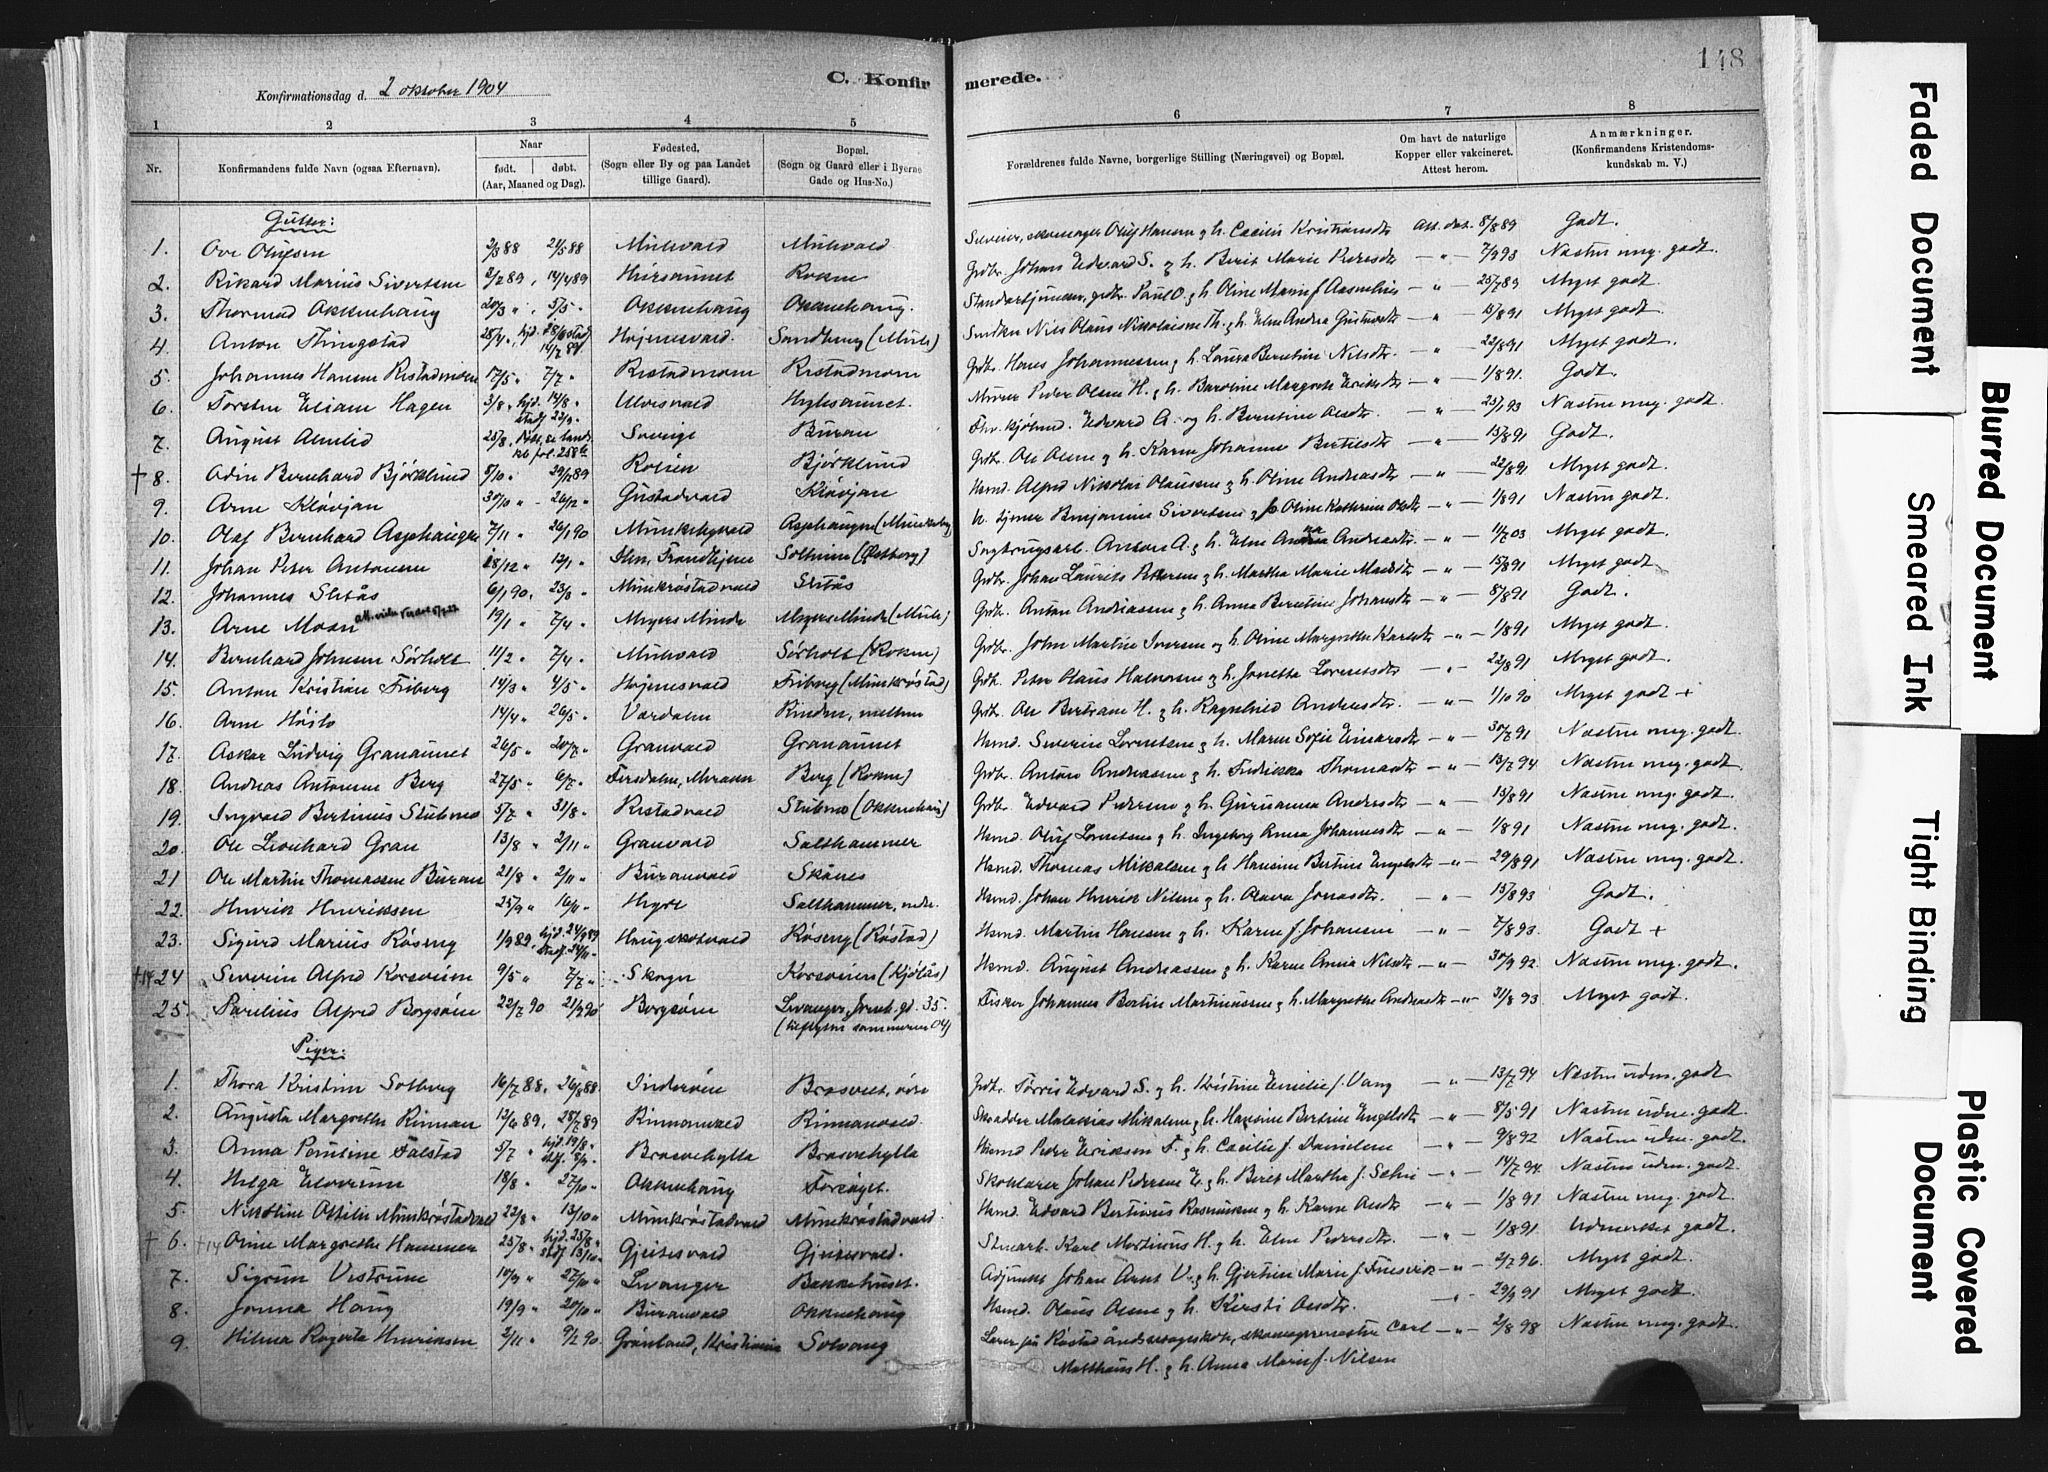 148
C. Konfirmerede.
Konfirmationsdag d. 2 oktober 1904
1 2 3 4 5 6 7 8
Nr. Konfirmandens fulde Navn (ogsaa Efternavn). Naar født. døbt. (Aar, Maaned og Dag). Fødested, (Sogn eller By og paa Landet tillige Gaard). Bopæl. (Sogn og Gaard eller i Byerne Gade og Hus-No.) Forældrenes fulde Navne, borgerlige Stilling (Næringsvei) og Bopæl. Om havt de naturlige Kopper eller vakcineret. Attest herom. Anmærkninger. (Konfirmandens Kristendomskundskab m. V.)
Gutter:
1. Ove Olufsen 88 21/5 88 Mulevald Mulevald Oluf Hansen og h. Cecilie Kristiansdtr Att. dat. 8/8 89 Godt.
2. Rikard Marius Sivertsen 89, 14/4 89 Rokne Grdbr. Johan Edvard S. og h. Berit Marie Pedersdtr — " — 7/9 93 Næsten meg. godt.
3. Thormod Okkenhaug 20/3 " 5/5 " Okkenhaug Okkenhaug. grdbr. Paul O. og h. Oline Marie f. — " — 25/7 89 Meget godt.
4. Anton Thingstad 28/4 " hjd. Højemsvald. Sandberg (Mule) Nils Olaus Nikolaisen Th. og h. Elen Andrea — " — 15/8 91 Meget godt.
5. Johannes Hansen Ristadmoen 17/5 " 7/7 " Ristadmoen Ristadmoen Grdbr. Hans Johannessen og h. Laura Berntine Nilsdtr — " — 22/8 91 Meget godt.
6. Torsten Eliam Hagen 3/8 " hjd. 14/8 " stadf. 22/9 " Ulvesvald Murer Peder Olsen H. og h. Baroline Margrete Eriksdtr — " — 1/8 91. Godt.
7. August Almlid 25/8 " Sverige Buran Edvard A. og h. Berntine Olsdtr. — " — 23/1 93 Næsten meg. godt.
† 8. Odin Bernhard Bjørklund 5/10 " 89 Bjørklund Grdbr. Ole Olsen og h. Karen Johanna Bertilsdtr — " — 15/8 91 Godt.
9. Arne Kløvjan 30/10 " 26/12 " Gustadvald Kløvjan Husmd. Alfred Nikolai Olaussen og h. Oline Andreasdtr — " — 22/8 91 Meget godt.
10. Olaf Bernhard Asphaugen 7/11 " 26/1 90 Munkebyvald Asphaugen (Munkeby) Benjamin Sivertsen og h. Oline Kathrine Olsdtr — " — 1/8 91 Næsten godt.
11. Johan Peter Antonsen 28/12 " 12/1 " Ihlen, Trondhjem Solheim Anton A. og h. Elen Anna Andreasdtr — " — 11/7 03 Meget godt.
12. Johannes Slitås 6/1 90, 23/3 " Munkrøstadvald Slitås Grdbr. Johan Laurits Petersen og h. Martha Marie — " — 15/8 91 Meget godt
13. Arne Moan 19/1 " 7/4 " Meyers Minde Meyers Minde (Mule) Grdbr. Anton Andreassen og h. Anna Berntine Johansdtr — " — 8/8 91 Godt.
14. Bernhard Johnsen Sørholt 11/2 " 7/4 " Mulevald Sørholt (Rokne) Grdbr. John Martin Iversen og h. Oline Margrethe Karlsdtr — " — 1/8 91 Meget godt
15. Anton Kristian Friberg 14/3 " 4/5 " Højemsvald Friberg (Munkrøstad) Grdbr. Peter Olaus Halvorsen og h. Jonetta Lorntsdtr — " — 22/8 91 Meget godt.
16. Arne Høslo 14/4 " 26/5 " Værdalen Rinden, mellem Grdbr. Ole Bertram H. og h. Ragnhild Andreasdtr. — " — 1/10 90 Meget godt +
17. Askar Ludvig Granaunet 26/5 " 20/7 " Granvald Granaunet Husmd. Severin Lorntsen og h. Maren Sofie Einarsdtr — " — 30/7 91 Næsten meg. godt.
18. Andreas Antonsen Berg 27/5 " 6/7 " Ferdalen, Meraker Berg (Rokne) Grdbr. Anton Andreassen og h. Fredrikka Thomasdtr — " — 13/7 94 Næsten meg. godt.
19. Ingvald Bertinus Stubmo 5/7 " 31/8 " Ristadvald Stubmo (Okkenhaug) Grdbr. Edvard Pedersen og h. Guruanna Andersdtr — " — 15/8 91 Næsten meg. godt.
20. Ole Leonhard Gran 13/8 " 2/11 " Granvald Salthammer Husmd. Oluf Lorntsen og h. Ingeborg Anna Johannesdtr — " — 1/8 91 Næsten meg. godt.
21 Ole Martin Thomassen Buran 21/8 " 2/11 " Buranvald Skånes Husmd. Thomas Mikalsen og h. Hansine Bertine Engelsdtr — " — 29/8 91 Næsten meg. godt.
22. Henrik Henriksen 25/9 " 16/11 " Salthammer, nedre. Husmd. Johan Henrik Nilsen og h. Olava Jonasdtr. — " — 15/8 93 Godt.
23. Sigurd Marius Røseng 1/9 89, Haugskotvald Røseng (Røstad) Husmd. Martin Hansen og h. Karen f. Johansen — " — 7/8 93. Godt +
24 Severin Alfred Korsveien 9/5 " 7/7 " Skogn Korsveien (Kjølås) Husmd. August Andreassen og h. Karen Anna Nilsdtr — " — 30/9 92 Næsten meg. godt.
25. Parelius Alfred Borgsøen 22/7 90 21/9 90 Borgsøen Levanger, 35. (tilflyttet sommeren 04) Fisker Johannes Bertin Martinussen og h. Margrethe Andreasdtr — " — 31/8 93 Meget godt.
Piger:
1. Thora Kristine Solberg 16/7 88, 26/8 88 Inderøen Brosveet, øvre Grdbr. Tørris Edvard S. og h. Kristine Emelie f. Vang — " — 13/7 94 Næsten udm. godt
2. Augusta Margrethe Rinnan 12/6 89, 28/7 89 Rinnanvald Rinnanvald. Skrædder Malakias Mikalsen og h. Hansine Bertine Engelsdtr — " — 8/5 91 Næsten udm. godt.
3. Anna Pauline Falstad 5/7 " hjd. 19/8 " Brosvehylla Brosvehylla Husmd Peder Eriksen F. og h. Cecilie f. Danielsen " — 9/8 92 Næsten udm. godt.
4. Helga Elverum 18/8 " 27/10 " Okkenhaug Forsøget. Skolelærer Johan Pedersen E. og h. Berit Martha f. Selnes — " — 14/7 94. Næsten udm. godt.
5. Nikoline Otilie Munkrøstadvald 22/8 " 13/10 " Munkrøstadvald Munkrøstadvald. Husmd. Edvard Bertinus Rasmussen og h. Karen Olsdtr — " — 1/8 91 Næsten meg. godt
† 6. Oline Margrethe Hammer 25/8 " hjd. 25/8 " stadf. 13/10 " Gjeitesvald Gjeitesvald. Karl Martinus H. og h. Elen Pedersdtr. — " — 1/8 91 Udmerket godt.
7. Sigrun Vestrum 10/9 " 27/10 " Levanger Bakkehuset. Adjunkt Johan Arnt V. og h. Gjertine Marie f. — " — 2/7 96. Meget godt
8. Jonna Haug 19/9 " 20/10 " Buranvald Okkenhaug Husmd. Olaus Olsen og h. Kirsti Olsdtr. — " — 29/9 91 Meget godt.
9. Hilma Rogerta Henriksen 2/11 " 9/2 90. Grønland, Kristiania Solvang Lærer på Røstad åndssvageskole, skomagermester Carl — " — 2/8 98 Næsten meg. godt.
Matthæus H. og h. Anna Marie f. Nilsen
Faded Document
Blurred Document
Smeared Ink
Tight Binding
Plastic Covered Document